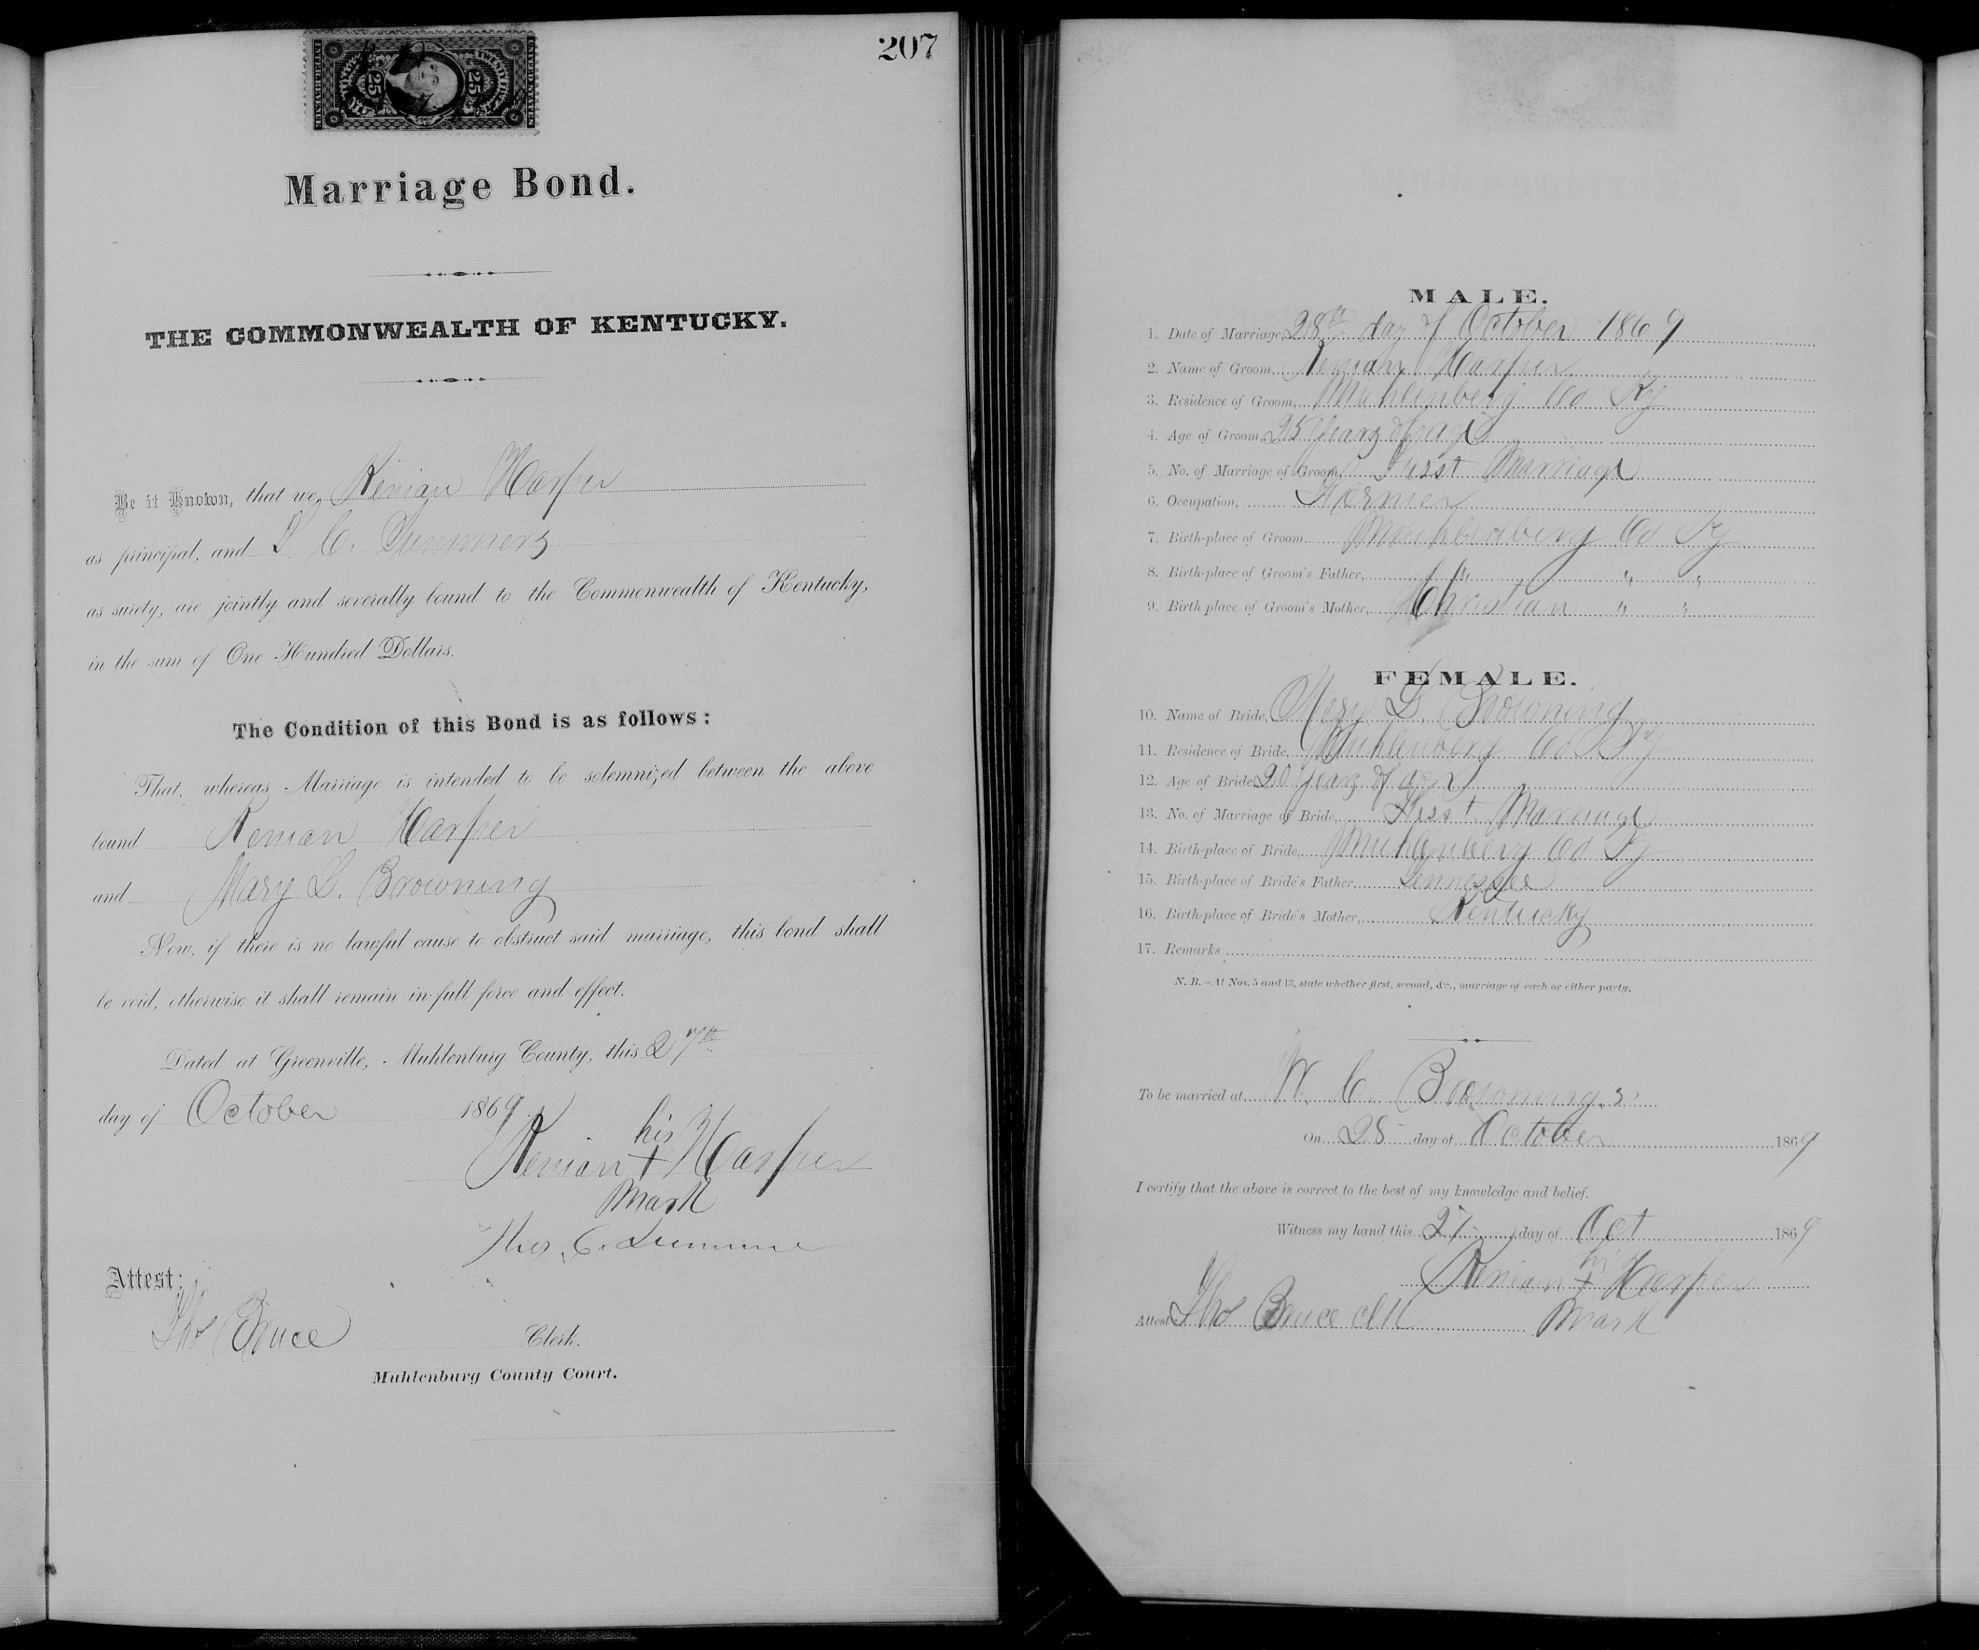 207
UNITED STATES
INTER. REVENUE
25
25
Marriage Bond.
THE COMMONWEALTH OF KENTUCKY.
Be it Known, that we, Kenian Harper
as principal, and T. C. Summers
as surety, are jointly and severally bound to the Commonwealth of Kentucky,
in the sum of One Hundred Dollars.
The Condition of this Bond is as follows:
That, whereas Marriage is intended to be solemnized between the above
bound Kenian Harper
and Mary L. Browning
Now, if there is no lawful cause to obstruct said marriage, this bond shall
be void, otherwise it shall remain in full force and effect.
Dated at Greenville, Muhlenburg County, this 27th
day of October 1869
his
Kenian + Harper
Mark
Thos. C. Summers
Attest:
Thos Bruce Clerk.
Muhlenburg County Court.
MALE.
1. Date of Marriage, 28th day of October 1869
2. Name of Groom, Kenian Harper
3. Residence of Groom, Muhlenberg Co Ky
4. Age of Groom, 25 years of age
5. No. of Marriage of Groom, First Marriage
6. Occupation, Farmer
7. Birth-place of Groom, Muhlenberg Co Ky
8. Birth-place of Groom's Father, " " "
9. Birth place of Groom's Mother, Christian " "
FEMALE.
10. Name of Bride, Mary L. Browning
11. Residence of Bride, Muhlenberg Co Ky
12. Age of Bride 20 years of age
13. No. of Marriage of Bride, First Marriage
14. Birth-place of Bride, Muhlenberg Co Ky
15. Birth-place of Bride's Father, Tennessee
16. Birth-place of Bride's Mother, Kentucky
17. Remarks
N. B.—At Nos. 5 and 13, state whether first, second, &c., marriage of each or either party.
To be married at W. C. Browning,s
On 28 day of October 1869
I certify that the above is correct to the best of my knowledge and belief.
Witness my hand this 27 day of Oct 1869
his
Kenian + Harper
Attest, Thos Bruce clk Mark